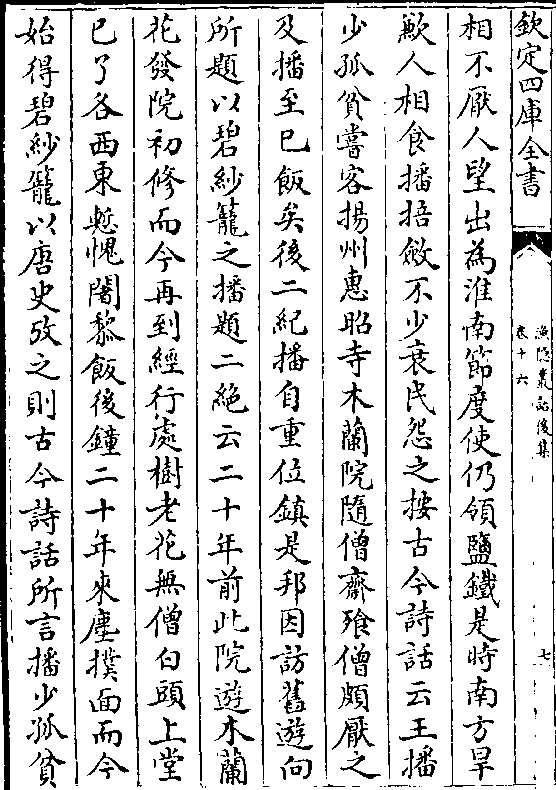 欽定四庫全書
漁隱叢話後集
卷十六
七
相不厭人望出為淮南節度使仍領鹽鐵是時南方旱
歉人相食播掊斂不少衰民怨之按古今詩話云王播
少孤貧嘗客揚州惠昭寺木蘭院隨僧齋飱僧頗厭之
及播至已飯矣後二紀播自重位鎮是邦因訪舊遊向
所題以碧紗籠之播題二絶云二十年前此院遊木蘭
花發院初修而今再到經行處樹老花無僧白頭上堂
已了各西東慙愧闍黎飯後鐘二十年來塵撲面而今
始得碧紗籠以唐史攷之則古今詩話所言播少孤貧